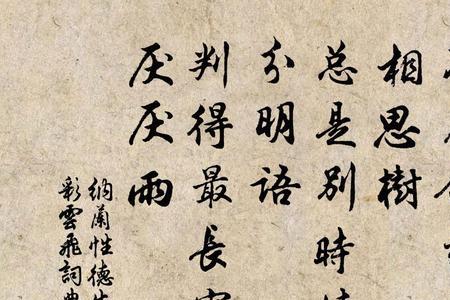 相思樹
总是别時
分明語
判得最長
厌厌雨
納蘭性德
彩雲飛詞